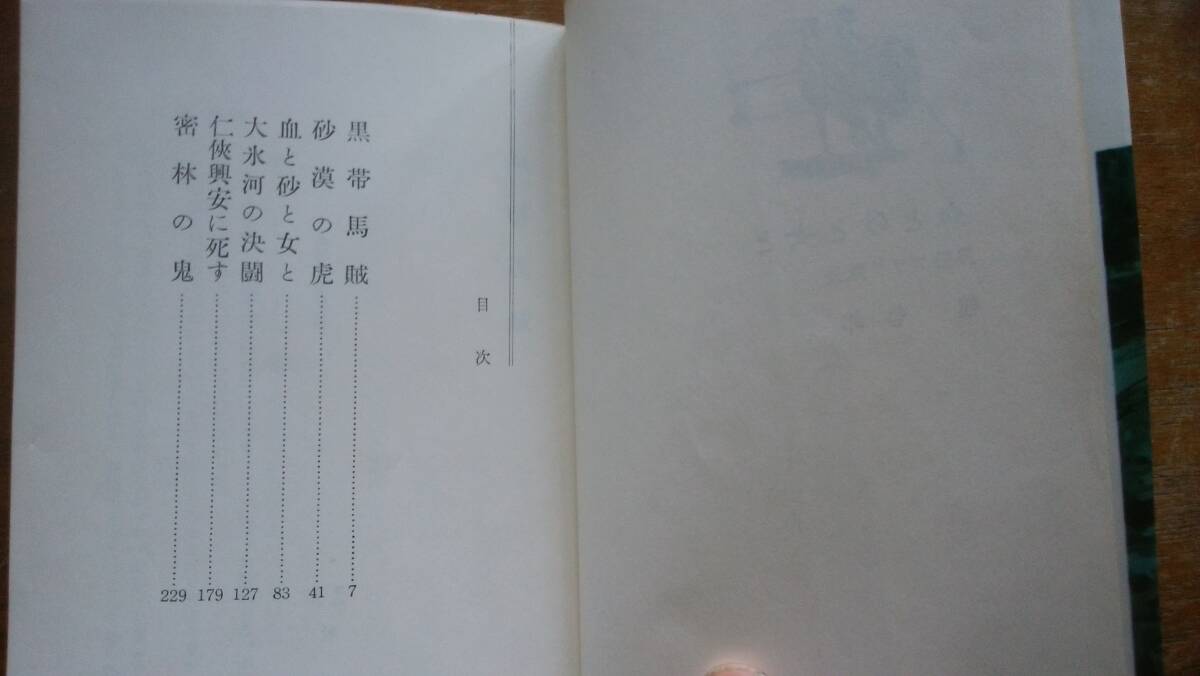 目次
黒帯馬賊……7
砂漠の虎……41
血と砂と女と……83
大氷河の決闘……127
仁俠興安に死す……179
密林の鬼……229